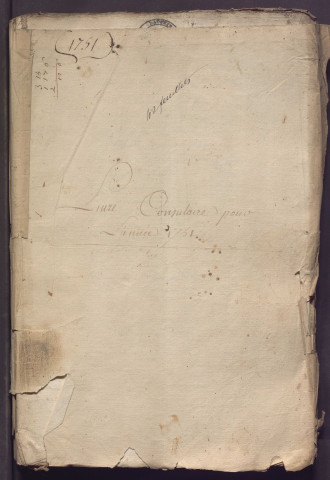 1751
42 feuillets
Livre Consulaire pour
L'année 1751